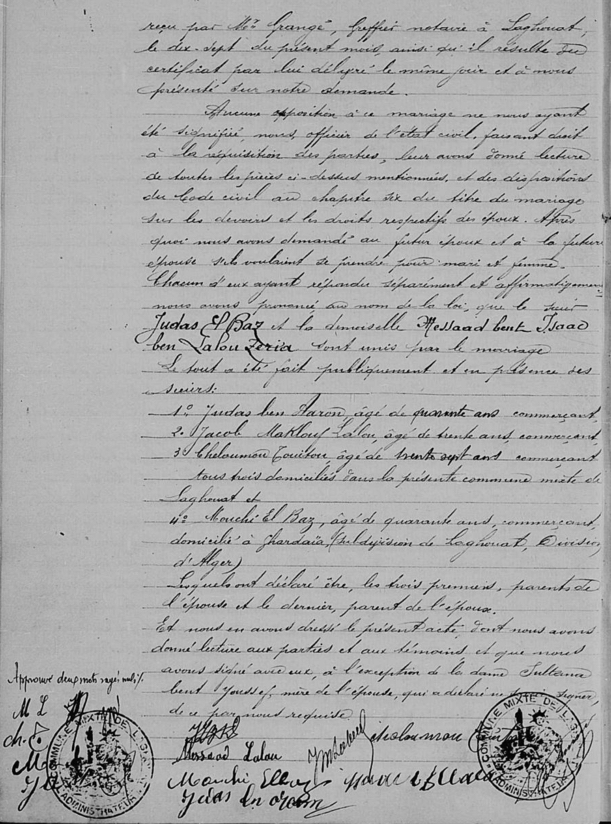 reçu par Me Grangé, Greffier notaire à Laghouat,
le dix-sept du présent mois, ainsi qu'il résulte du
certificat par lui délivré le même jour et à nous
présenté sur notre demande.
Aucune opposition à ce mariage ne nous ayant
été signifiée, nous, officier de l'état civil, faisant droit
à la réquisition des parties, leur avons donné lecture
de toutes les pièces ci-dessus mentionnées, et des dispositions
du Code civil au chapitre six du titre du mariage
sur les devoirs et les droits respectifs des époux. Après
quoi nous avons demandé au futur époux et à la future
épouse s'ils voulaient se prendre pour mari et femme.
Chacun d'eux ayant répondu séparément et affirmativement
nous avons prononcé au nom de la loi, que le sieur
Judas El Baz et la demoiselle Messaad bent Isaac
ben Lalou Zeria sont unis par le mariage
Le tout a été fait publiquement et en présence des
sieurs:
1º Judas ben Aaron, âgé de quarante ans commerçant,
2º Jacob Maklouf Lalou, âgé de trente ans, commerçant
3º Cheloumou Touitou, âgé de trente sept ans commerçant
tous trois domiciliés dans la présente commune mixte de
Laghouat et
4º Mouchi El Baz, âgé de quarante ans, commerçant,
domicilié à Ghardaïa, (Subdivision de Laghouat, Division
d'Alger)
Lesquels ont déclaré être, les trois premiers, parents de
l'épouse et le dernier, parent de l'époux.
Et nous en avons dressé le présent acte, dont nous avons
donné lecture aux parties et aux témoins et que nous
avons signé avec eux, à l'exception de la dame Sultana
bent Youssef, mère de l'épouse, qui a déclaré ne signer,
de ce par nous requise
Approuvé deux mots rayés nuls
M L
Messaad Lalou
Mouchi El Baz
Judas
COMMUNE MIXTE DE LAGHOUAT
ADMINISTRATEUR
COMMUNE MIXTE DE LAGHOUAT
ADMINISTRATEUR